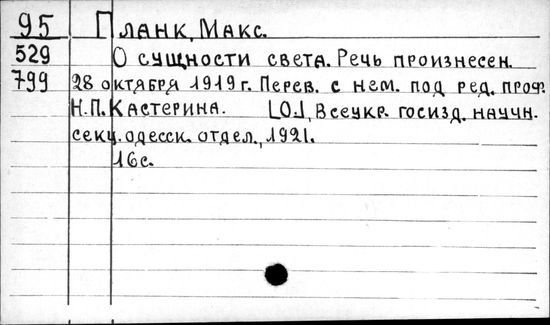 95 Планк, Макс.
529 О сущности света. Речь произнесен.
799 28 октября 1919 г. Перев. с нем. под ред. проф.
Н.П. Кастерина. [О.], Всеукр. госизд. научн.
секц. одесск. отдел., 1921.
16 с.